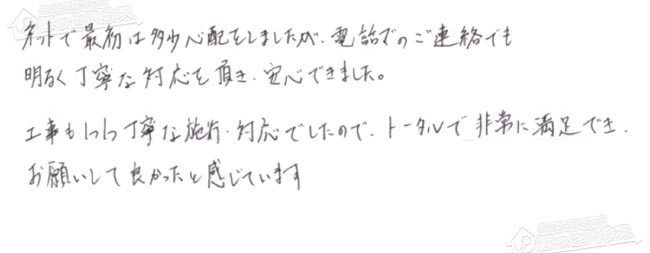 ネットで最初は多少心配をしましたが、電話でのご連絡でも
明るく丁寧な対応を頂き、安心できました。
工事も1つ1つ丁寧な施行、対応でしたので、トータルで非常に満足でき、
お願いして良かったと感じています